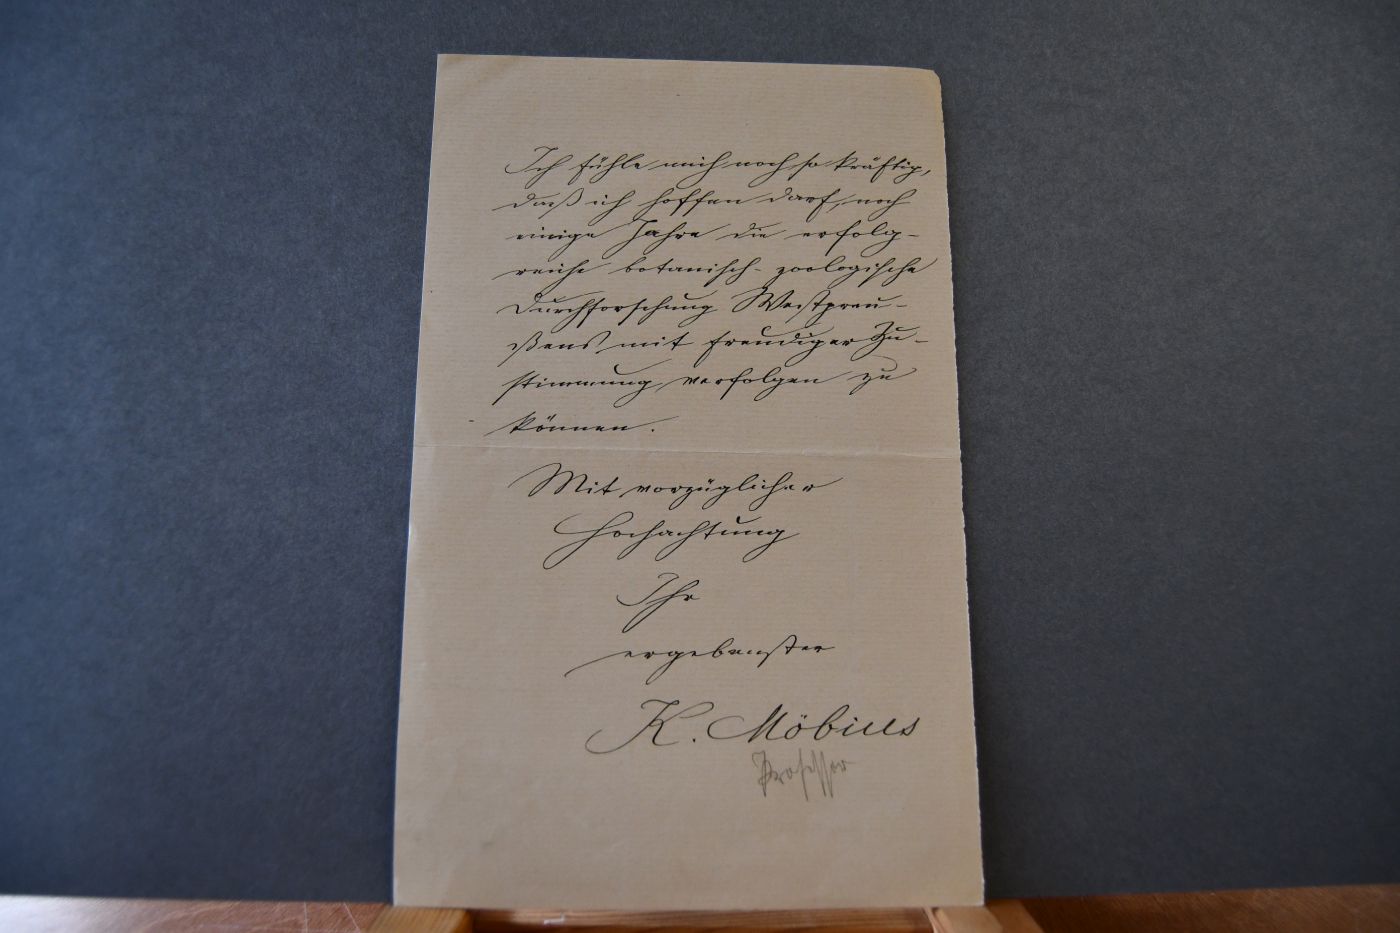 Ich fühle mich noch so kräftig,
daß ich hoffen darf, noch
einige Jahre die erfolg-
reiche botanisch-zoologische
Durchforschung Westpreu-
ßens mit freudiger Zu-
stimmung verfolgen zu
können.
Mit vorzüglicher
Hochachtung
Ihr
ergebenster
K. Möbius
Professor